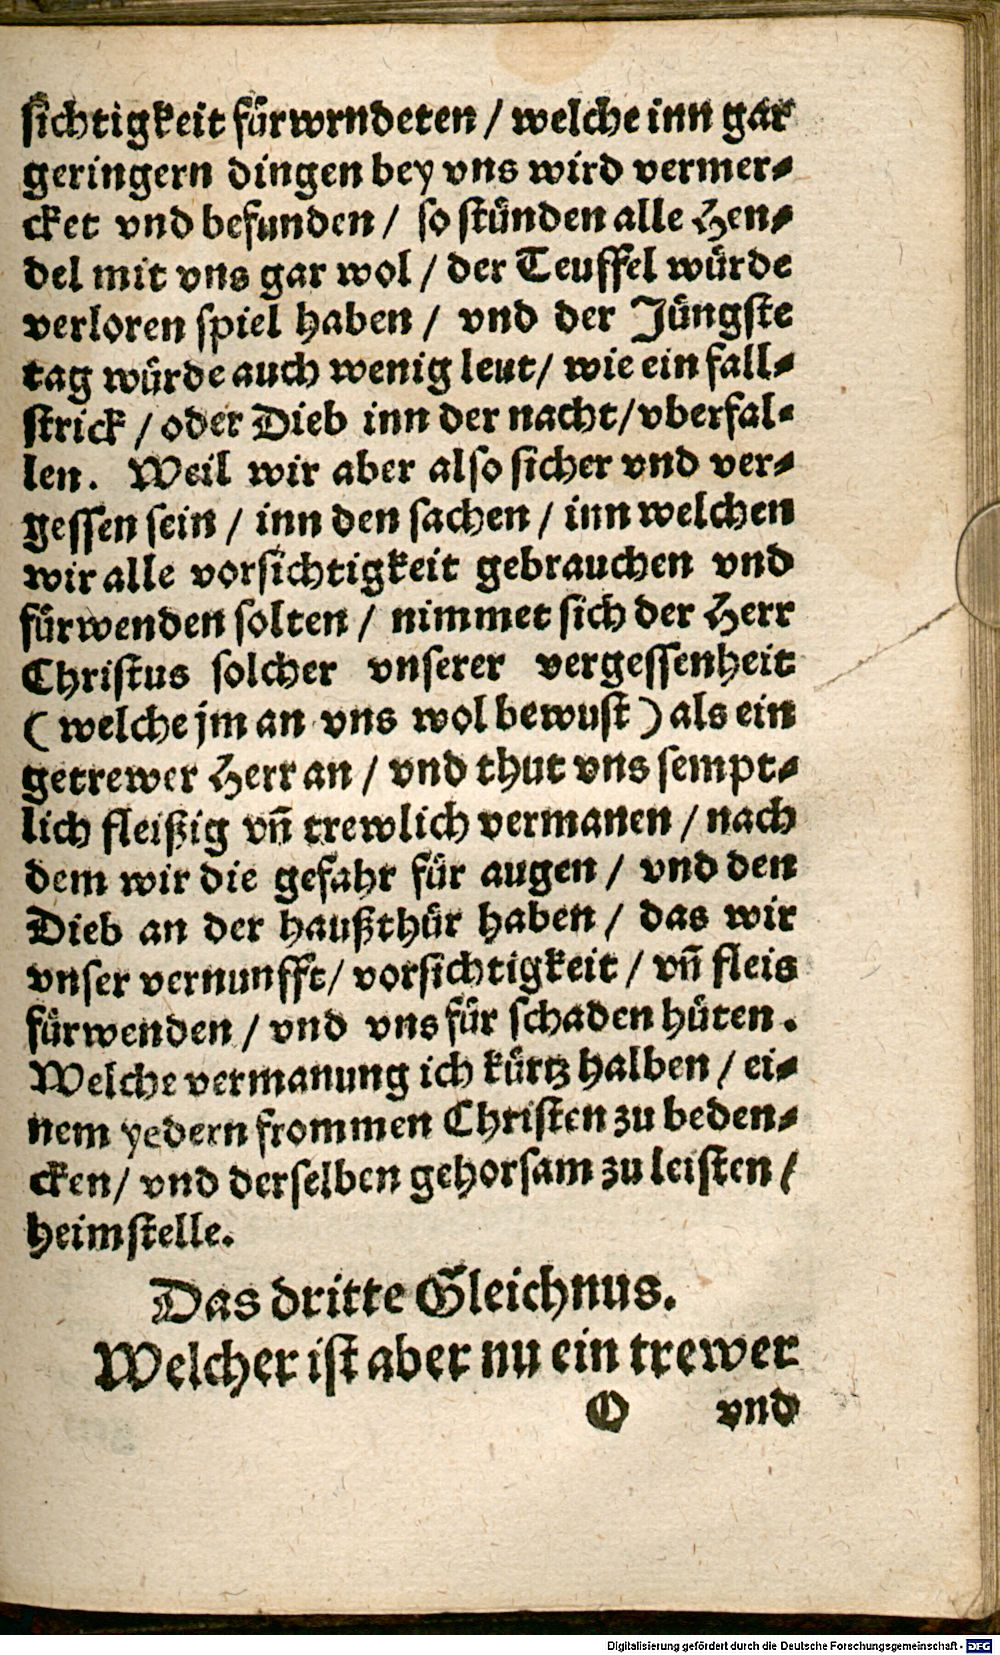 sichtigkeit fürwrndeten / welche inn gar
geringern dingen bey vns wird vermer⸗
cket vnd befunden / so stünden alle Hen⸗
del mit vns gar wol / der Teuffel würde
verloren spiel haben / vnd der Jüngste
tag würde auch wenig leut / wie ein fall⸗
strick / oder Dieb inn der nacht / vberfal⸗
len. Weil wir aber also sicher vnd ver⸗
gessen sein / inn den sachen / inn welchen
wir alle vorsichtigkeit gebrauchen vnd
fürwenden solten / nimmet sich der Herr
Christus solcher vnserer vergessenheit
( welche jm an vns wol bewust ) als ein
getrewer Herr an / vnd thut vns sempt⸗
lich fleißig vn̄ trewlich vermanen / nach
dem wir die gefahr für augen / vnd den
Dieb an der haußthür haben / das wir
vnser vernunfft / vorsichtigkeit / vn̄ fleis
fürwenden / vnd vns für schaden hüten.
Welche vermanung ich kürtz halben / ei⸗
nem yedern frommen Christen zu beden⸗
cken / vnd derselben gehorsam zu leisten /
heimstelle.
Das dritte Gleichnus.
Welcher ist aber nu ein trewer
O vnd
Digitalisierung gefördert durch die Deutsche Forschungsgemeinschaft - DFG